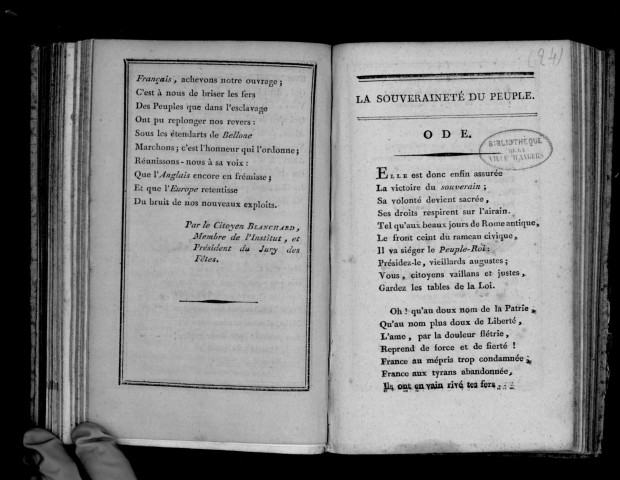 Français, achevons notre ouvrage;
C'est à nous de briser les fers
Des Peuples que dans l'esclavage
Ont pu replonger nos revers:
Sous les étendarts de Bellone
Marchons; c'est l'honneur qui l'ordonne;
Réunissons-nous à sa voix:
Que l'Anglais encore en frémisse;
Et que l'Europe retentisse
Du bruit de nos nouveaux exploits.
Par le Citoyen BLANCHARD,
Membre de l'Institut, et
Président du Jury des
Fêtes.
(24)
LA SOUVERAINETÉ DU PEUPLE.
ODE.
BIBLIOTHÈQUE
DE LA
VILLE D'ANGERS
ELLE est donc enfin assurée
La victoire du souverain;
Sa volonté devient sacrée,
Ses droits respirent sur l'airain.
Tel qu'aux beaux jours de Rome antique,
Le front ceint du rameau civique,
Il va siéger le Peuple-Roi:
Présidez-le, vieillards augustes;
Vous, citoyens vaillans et justes,
Gardez les tables de la Loi.
Oh! qu'au doux nom de la Patrie,
Qu'au nom plus doux de Liberté,
L'ame, par la douleur flétrie,
Reprend de force et de fierté!
France au mépris trop condamnée;
France aux tyrans abandonnée,
Ils ont en vain rivé tes fers